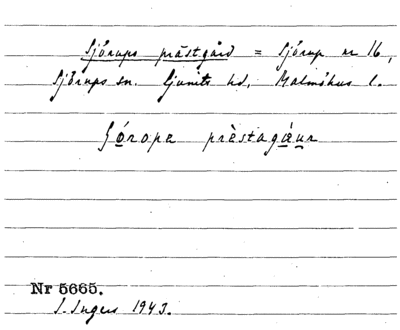 Sjörups prästgård = Sjörup nr 16,
Sjörups sn. Ljunits hd, Malmöhus l.
prèstagǽur
Nr 5665.
I. Ingers 1943.